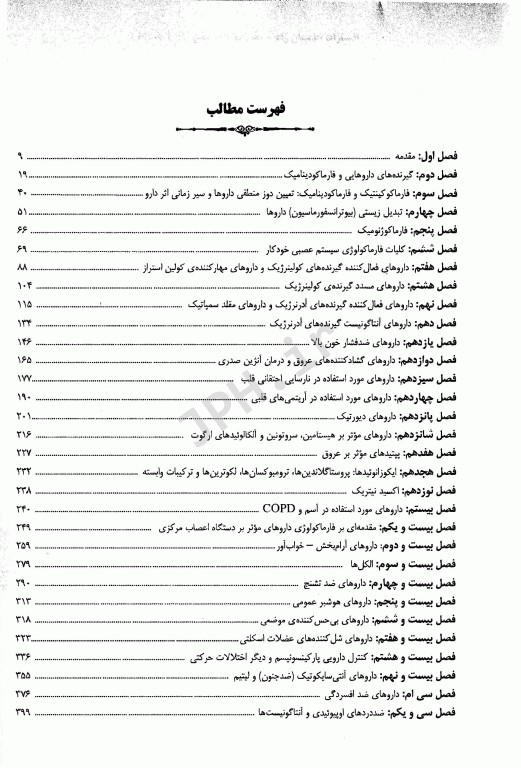 فهرست مطالب
فصل اول: مقدمه ۹
فصل دوم: گیرنده‌های داروهایی و فارماکودینامیک ۱۹
فصل سوم: فارماکوکینتیک و فارماکودینامیک: تعیین دوز منطقی داروها و سیر زمانی اثر دارو ۴۰
فصل چهارم: تبدیل زیستی (بیوترانسفورماسیون) داروها ۵۱
فصل پنجم: فارماکوژنومیک ۶۶
فصل ششم: کلیات فارماکولوژی سیستم عصبی خودکار ۶۹
فصل هفتم: داروهای فعال‌کننده گیرنده‌های کولینرژیک و داروهای مهارکننده‌ی کولین استراز ۸۸
فصل هشتم: داروهای مسدد گیرنده‌ی کولینرژیک ۱۰۴
فصل نهم: داروهای فعال‌کننده گیرنده‌های آدرنرژیک و داروهای مقلد سمپاتیک ۱۱۵
فصل دهم: داروهای آنتاگونیست گیرنده‌های آدرنرژیک ۱۳۴
فصل یازدهم: داروهای ضدفشار خون بالا ۱۴۶
فصل دوازدهم: داروهای گشادکننده‌های عروق و درمان آنژین صدری ۱۶۵
فصل سیزدهم: داروهای مورد استفاده در نارسایی احتقانی قلب ۱۷۷
فصل چهاردهم: داروهای مورد استفاده در آریتمی‌های قلبی ۱۹۰
فصل پانزدهم: داروهای دیورتیک ۲۰۱
فصل شانزدهم: داروهای مؤثر بر هیستامین، سروتونین و آلکالوئیدهای ارگوت ۲۱۶
فصل هفدهم: پپتیدهای مؤثر بر عروق ۲۲۷
فصل هجدهم: ایکوزانوئیدها: پروستاگلاندین‌ها، ترومبوکسان‌ها، لکوترین‌ها و ترکیبات وابسته ۲۳۲
فصل نوزدهم: اکسید نیتریک ۲۳۸
فصل بیستم: داروهای مورد استفاده در آسم و COPD ۲۴۰
فصل بیست و یکم: مقدمه‌ای بر فارماکولوژی داروهای مؤثر بر دستگاه اعصاب مرکزی ۲۴۹
فصل بیست و دوم: داروهای آرام‌بخش – خواب‌آور ۲۵۹
فصل بیست و سوم: الکل‌ها ۲۷۹
فصل بیست و چهارم: داروهای ضد تشنج ۲۹۰
فصل بیست و پنجم: داروهای هوشبر عمومی ۳۱۳
فصل بیست و ششم: داروهای بی‌حس‌کننده‌ی موضعی ۳۱۸
فصل بیست و هفتم: داروهای شل‌کننده‌های عضلات اسکلتی ۳۲۳
فصل بیست و هشتم: کنترل دارویی پارکینسونیسم و دیگر اختلالات حرکتی ۳۳۶
فصل بیست و نهم: داروهای آنتی‌سایکوتیک (ضدجنون) و لیتیم ۳۵۵
فصل سی ام: داروهای ضد افسردگی ۳۷۶
فصل سی و یکم: ضددردهای اوپیوئیدی و آنتاگونیست‌ها ۳۹۹
JPH.ir